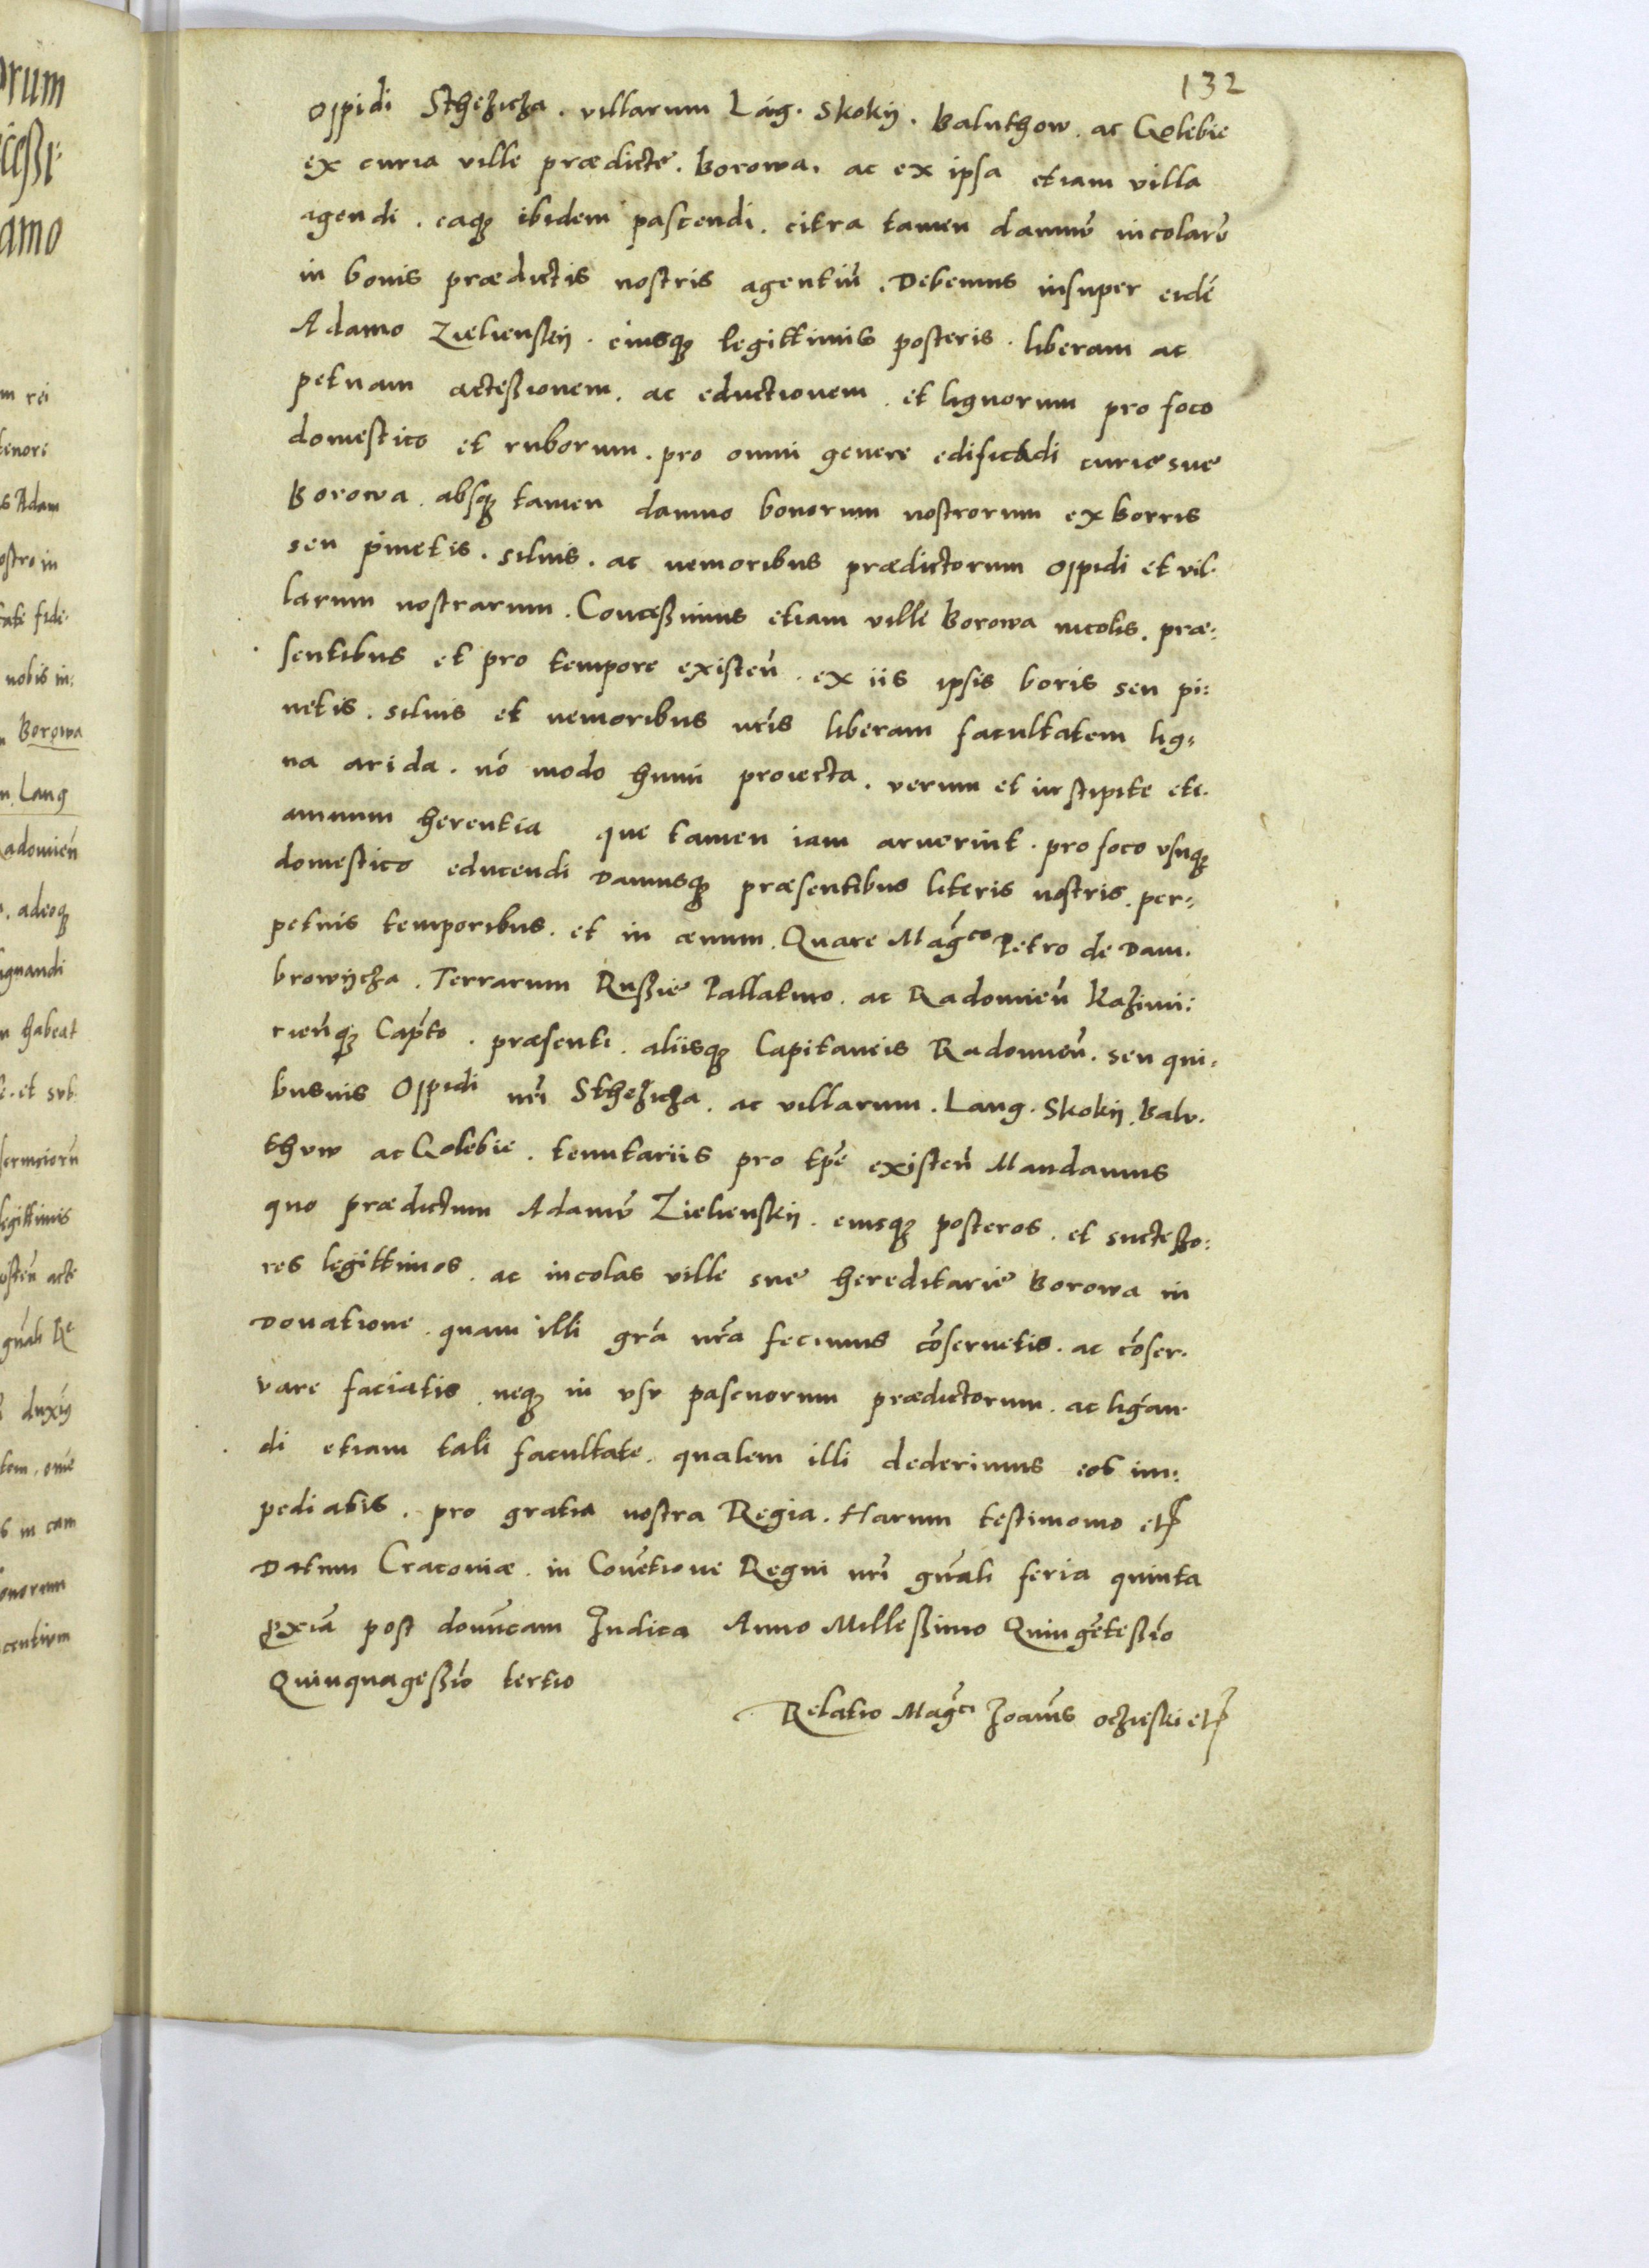 132
Oppidi Sthezicza . villarum Lág . Skokij . Baluthow . ac Golebie
ex curia ville prædicte . Borowa . ac ex ipsa etiam villa
agendi . eaqȝ ibidem pascendi . citra tamen damnū incolarū
in bonis prædictis nostris agentiū . Debemus insuper eidē
Adamo Zielienskij . eiusqȝ legittimis posteris . liberam ac
petuam accessionem . ac eductionem . et lignorum pro foco
domestico et ruborum . pro omni genere edificādi curie sue
Borowa . absqȝ tamen damno bonorum nostrorum ex borris
seu pinetis . siluis . ac nemoribus prædictorum oppidi et vil-
larum nostrarum . Concessimus etiam ville Borowa incolis . præ-
sentibus et pro tempore existeñ . ex iis ipsis boris seu pi-
netis . siluis et nemoribus nr̃is liberam facultatem lig-
na arida . nō modo humi proiecta . verum et in stipite eti-
amnum herentia que tamen iam aruerint . pro foco vsuqȝ
domestico educendi Damusqȝ præsentibus literis nostris . per-
petuis temporibus . et in æuum . Quare Mag̃co Petro de Dam-
browijcza . Terrarum Russie Pallatino . ac Radomieñ Kazimi-
rieñqȝ Cap̃to . præsenti . aliisqȝ Capitaneis Radomieñ . seu qui-
busuis Oppidi nr̃i Sthezicza . ac villarum . Lang . Skokij . Balu-
thow ac Golebie . tenutariis pro tp̃e existeñ Mandamus
quo prædictum Adamū Zielienskij . eiusqȝ posteros . et successo-
res legittimos . ac incolas ville sue hereditarie Borowa in
Donatione . quam illi gr̃a nr̃a fecimus cōseruetis . ac cōser-
vare faciatis . neqȝ in vsu pascuorum prædictorum . ac lignan-
di etiam tali facultate . qualem illi dederimus eos im-
pediatis . pro gratia nostra Regia . Harum testimonio etc
Datum Cracoviæ . in Cōuētione Regni nr̃i gñali feria quinta
p̱xiā post dominicam Iudica Anno Millessimo Quingētessīo
Quinquagessīo tertio
Relatio Mag̃ci Joañis oczieski etc